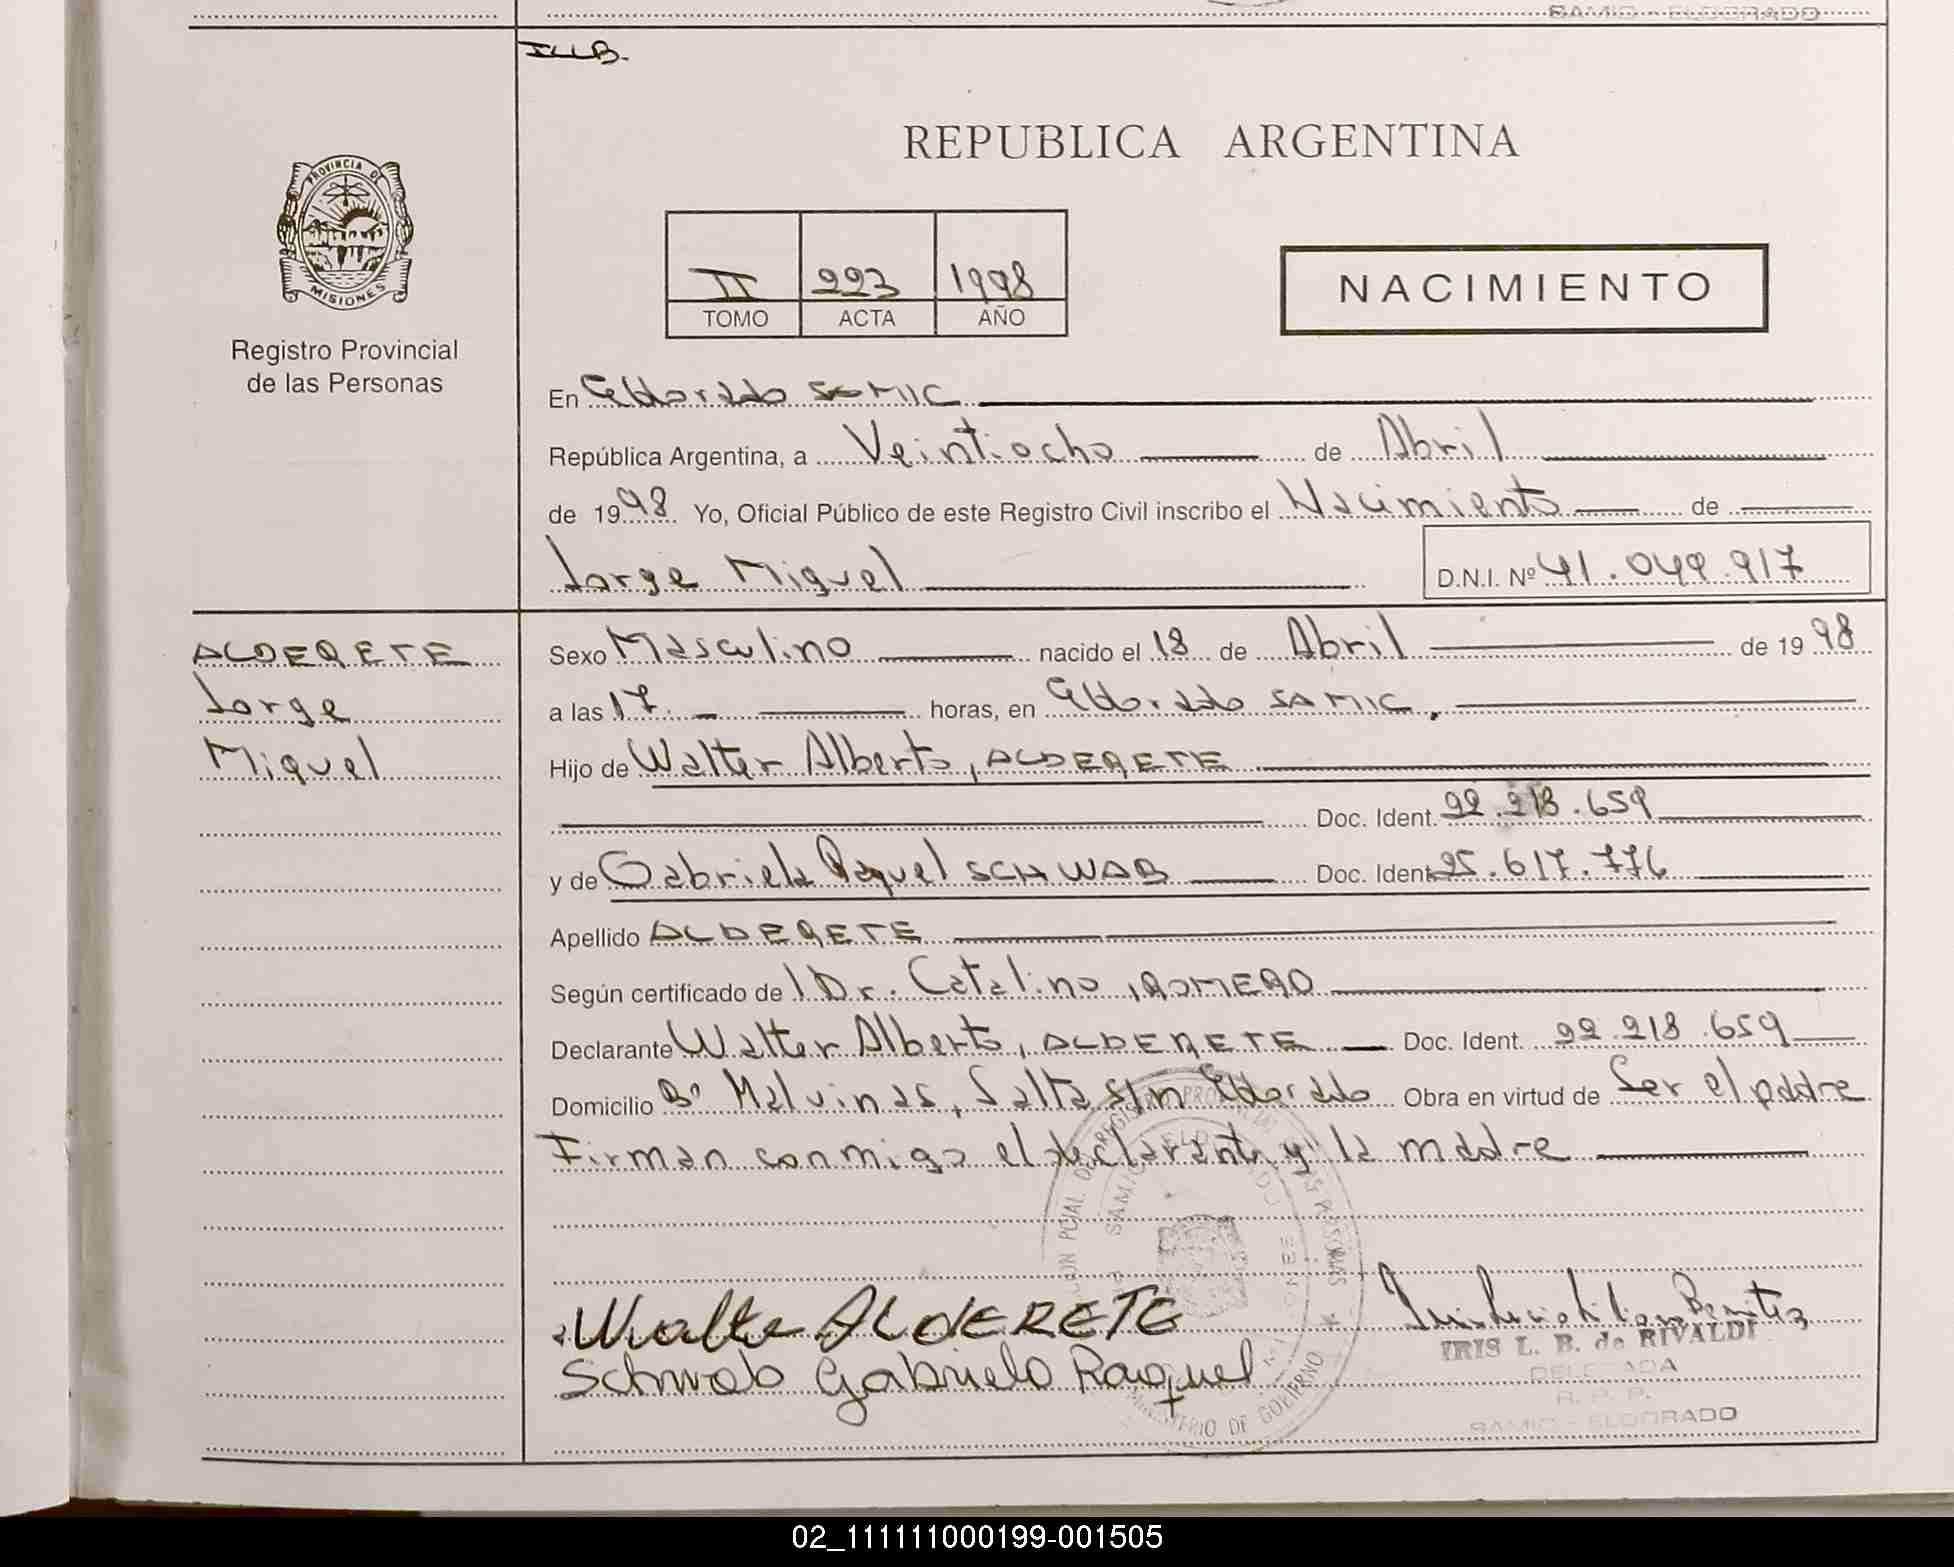 SAMIC - ELDORADO
ILLB.
REPUBLICA ARGENTINA
PROVINCIA DE
MISIONES
II 223 1998
TOMO ACTA AÑO
NACIMIENTO
Registro Provincial
de las Personas
En Eldorado SAMIC
República Argentina, a Veintiocho de Abril
de 1998 Yo, Oficial Público de este Registro Civil inscribo el Nacimiento de
Jorge Miguel D.N.I. Nº 41.049.917
ALDERETE
Jorge
Miguel
Sexo Masculino nacido el 18 de Abril de 1998
a las 17. horas, en Eldorado SAMIC,
Hijo de Walter Alberto, ALDERETE
Doc. Ident. 22.218.659
y de Gabriela Raquel SCHWAB Doc. Ident. 25.617.776
Apellido ALDERETE
Según certificado de l Dr. Catalino, ROMERO
Declarante Walter Alberto, ALDERETE Doc. Ident. 22.218.659
Domicilio Bº Malvinas, Salta S/n Eldorado Obra en virtud de Ser el padre
Firman conmigo el declarante y la madre
Walter ALDERETE
Schwab Gabriela Raquel
Benitez
IRIS L. B. de RIVALDI
DELEGADA
R. P. P.
SAMIC - ELDORADO
MINISTERIO DE GOBIERNO
02_111111000199-001505